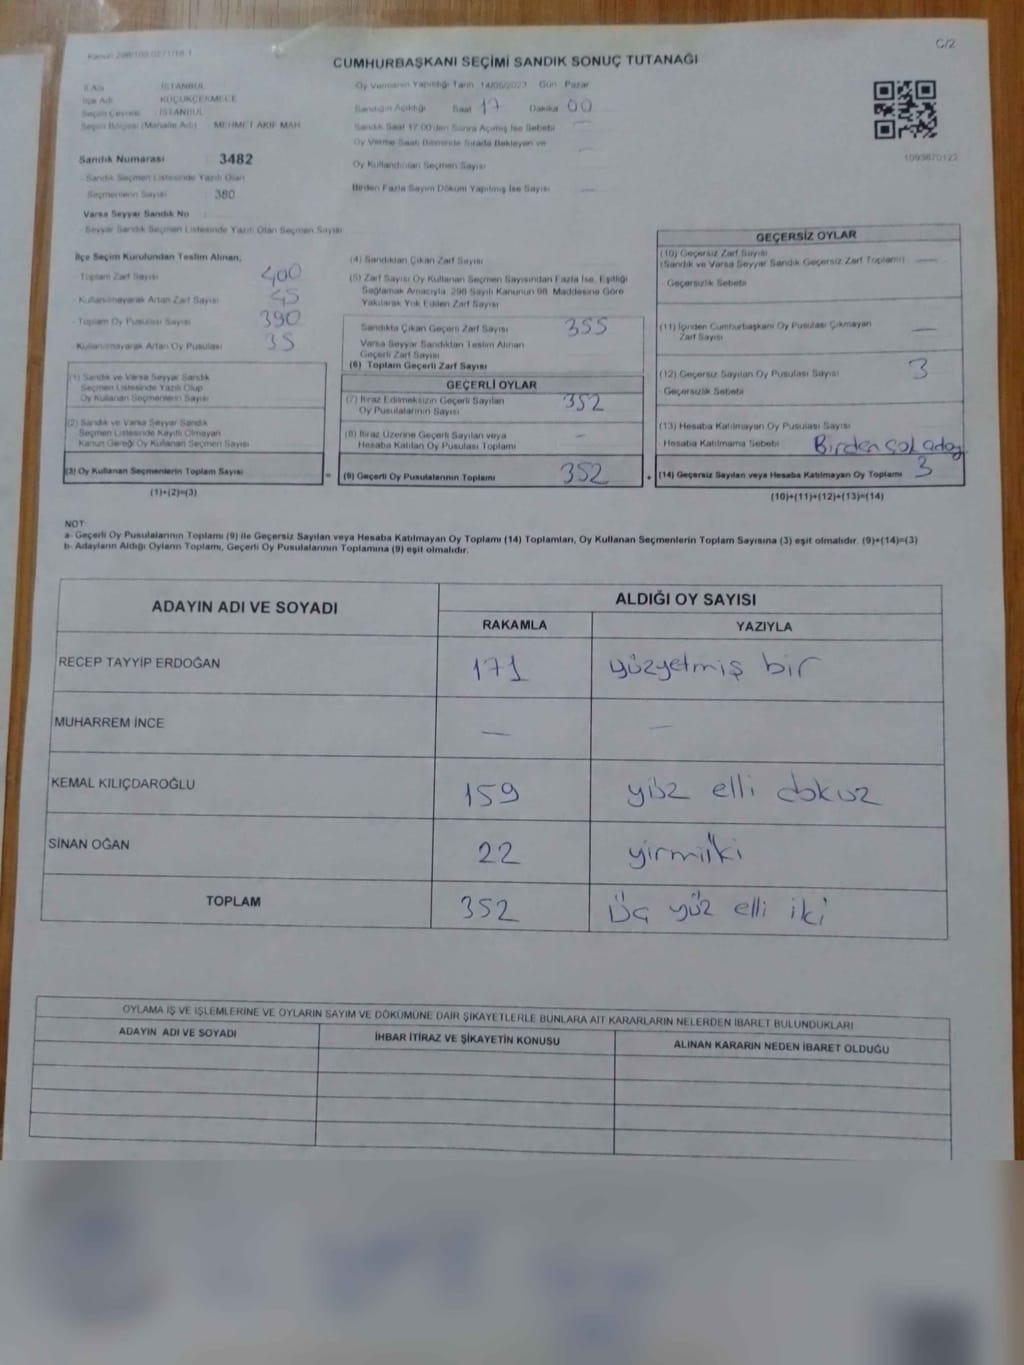 C/2
CUMHURBAŞKANI SEÇİMİ SANDIK SONUÇ TUTANAĞI
İli Adı : İSTANBUL
İlçe Adı : KÜÇÜKÇEKMECE
Seçim Çevresi : İSTANBUL
Seçim Bölgesi (Mahalle Adı) : MEHMET AKİF MAH
Sandık Numarası : 3482
- Sandık Seçmen Listesinde Yazılı Olan
Seçmenlerin Sayısı : 380
Varsa Seyyar Sandık No
- Seyyar Sandık Seçmen Listesinde Yazılı Olan Seçmen Sayısı
Oy Vermenin Yapıldığı Tarih 14/05/2023 Gün Pazar
Sandığın Açıldığı Saat 17 Dakika 00
Sandık Saat 17.00'den Sonra Açılmış İse Sebebi —
Oy Verme Saati Bitiminde Sırada Bekleyen ve
Oy Kullandırılan Seçmen Sayısı —
Birden Fazla Sayım Döküm Yapılmış İse Sayısı —
1093870122
İlçe Seçim Kurulundan Teslim Alınan;
- Toplam Zarf Sayısı 400
- Kullanılmayarak Artan Zarf Sayısı 45
- Toplam Oy Pusulası Sayısı 390
- Kullanılmayarak Artan Oy Pusulası 35
(1) Sandık ve Varsa Seyyar Sandık
Seçmen Listesinde Yazılı Olup
Oy Kullanan Seçmenlerin Sayısı
(2) Sandık ve Varsa Seyyar Sandık
Seçmen Listesinde Kayıtlı Olmayan
Kanun Gereği Oy Kullanan Seçmen Sayısı
(3) Oy Kullanan Seçmenlerin Toplam Sayısı
(1)+(2)=(3)
(4) Sandıktan Çıkan Zarf Sayısı
(5) Zarf Sayısı Oy Kullanan Seçmen Sayısından Fazla İse, Eşitliği
Sağlamak Amacıyla, 298 Sayılı Kanunun 98. Maddesine Göre
Yakılarak Yok Edilen Zarf Sayısı
Sandıkta Çıkan Geçerli Zarf Sayısı 355
Varsa Seyyar Sandıktan Teslim Alınan
Geçerli Zarf Sayısı
(6) Toplam Geçerli Zarf Sayısı
GEÇERLİ OYLAR
(7) İtiraz Edilmeksizin Geçerli Sayılan
Oy Pusulalarının Sayısı 352
(8) İtiraz Üzerine Geçerli Sayılan veya
Hesaba Katılan Oy Pusulası Toplamı —
= (9) Geçerli Oy Pusulalarının Toplamı 352
GEÇERSİZ OYLAR
(10) Geçersiz Zarf Sayısı
(Sandık ve Varsa Seyyar Sandık Geçersiz Zarf Toplamı) —
- Geçersizlik Sebebi
(11) İçinden Cumhurbaşkanı Oy Pusulası Çıkmayan
Zarf Sayısı —
(12) Geçersiz Sayılan Oy Pusulası Sayısı 3
Geçersizlik Sebebi
(13) Hesaba Katılmayan Oy Pusulası Sayısı
Hesaba Katılmama Sebebi Birden çok aday
+ (14) Geçersiz Sayılan veya Hesaba Katılmayan Oy Toplamı 3
(10)+(11)+(12)+(13)=(14)
NOT:
a- Geçerli Oy Pusulalarının Toplamı (9) ile Geçersiz Sayılan veya Hesaba Katılmayan Oy Toplamı (14) Toplamları, Oy Kullanan Seçmenlerin Toplam Sayısına (3) eşit olmalıdır. (9)+(14)=(3)
b- Adayların Aldığı Oyların Toplamı, Geçerli Oy Pusulalarının Toplamına (9) eşit olmalıdır.
ADAYIN ADI VE SOYADI ALDIĞI OY SAYISI
RAKAMLA YAZIYLA
RECEP TAYYİP ERDOĞAN 171 yüzyetmiş bir
MUHARREM İNCE — —
KEMAL KILIÇDAROĞLU 159 yüz elli dokuz
SİNAN OĞAN 22 yirmiiki
TOPLAM 352 üç yüz elli iki
OYLAMA İŞ VE İŞLEMLERİNE VE OYLARIN SAYIM VE DÖKÜMÜNE DAİR ŞİKAYETLERLE BUNLARA AİT KARARLARIN NELERDEN İBARET BULUNDUKLARI
ADAYIN ADI VE SOYADI İHBAR İTİRAZ VE ŞİKAYETİN KONUSU ALINAN KARARIN NEDEN İBARET OLDUĞU